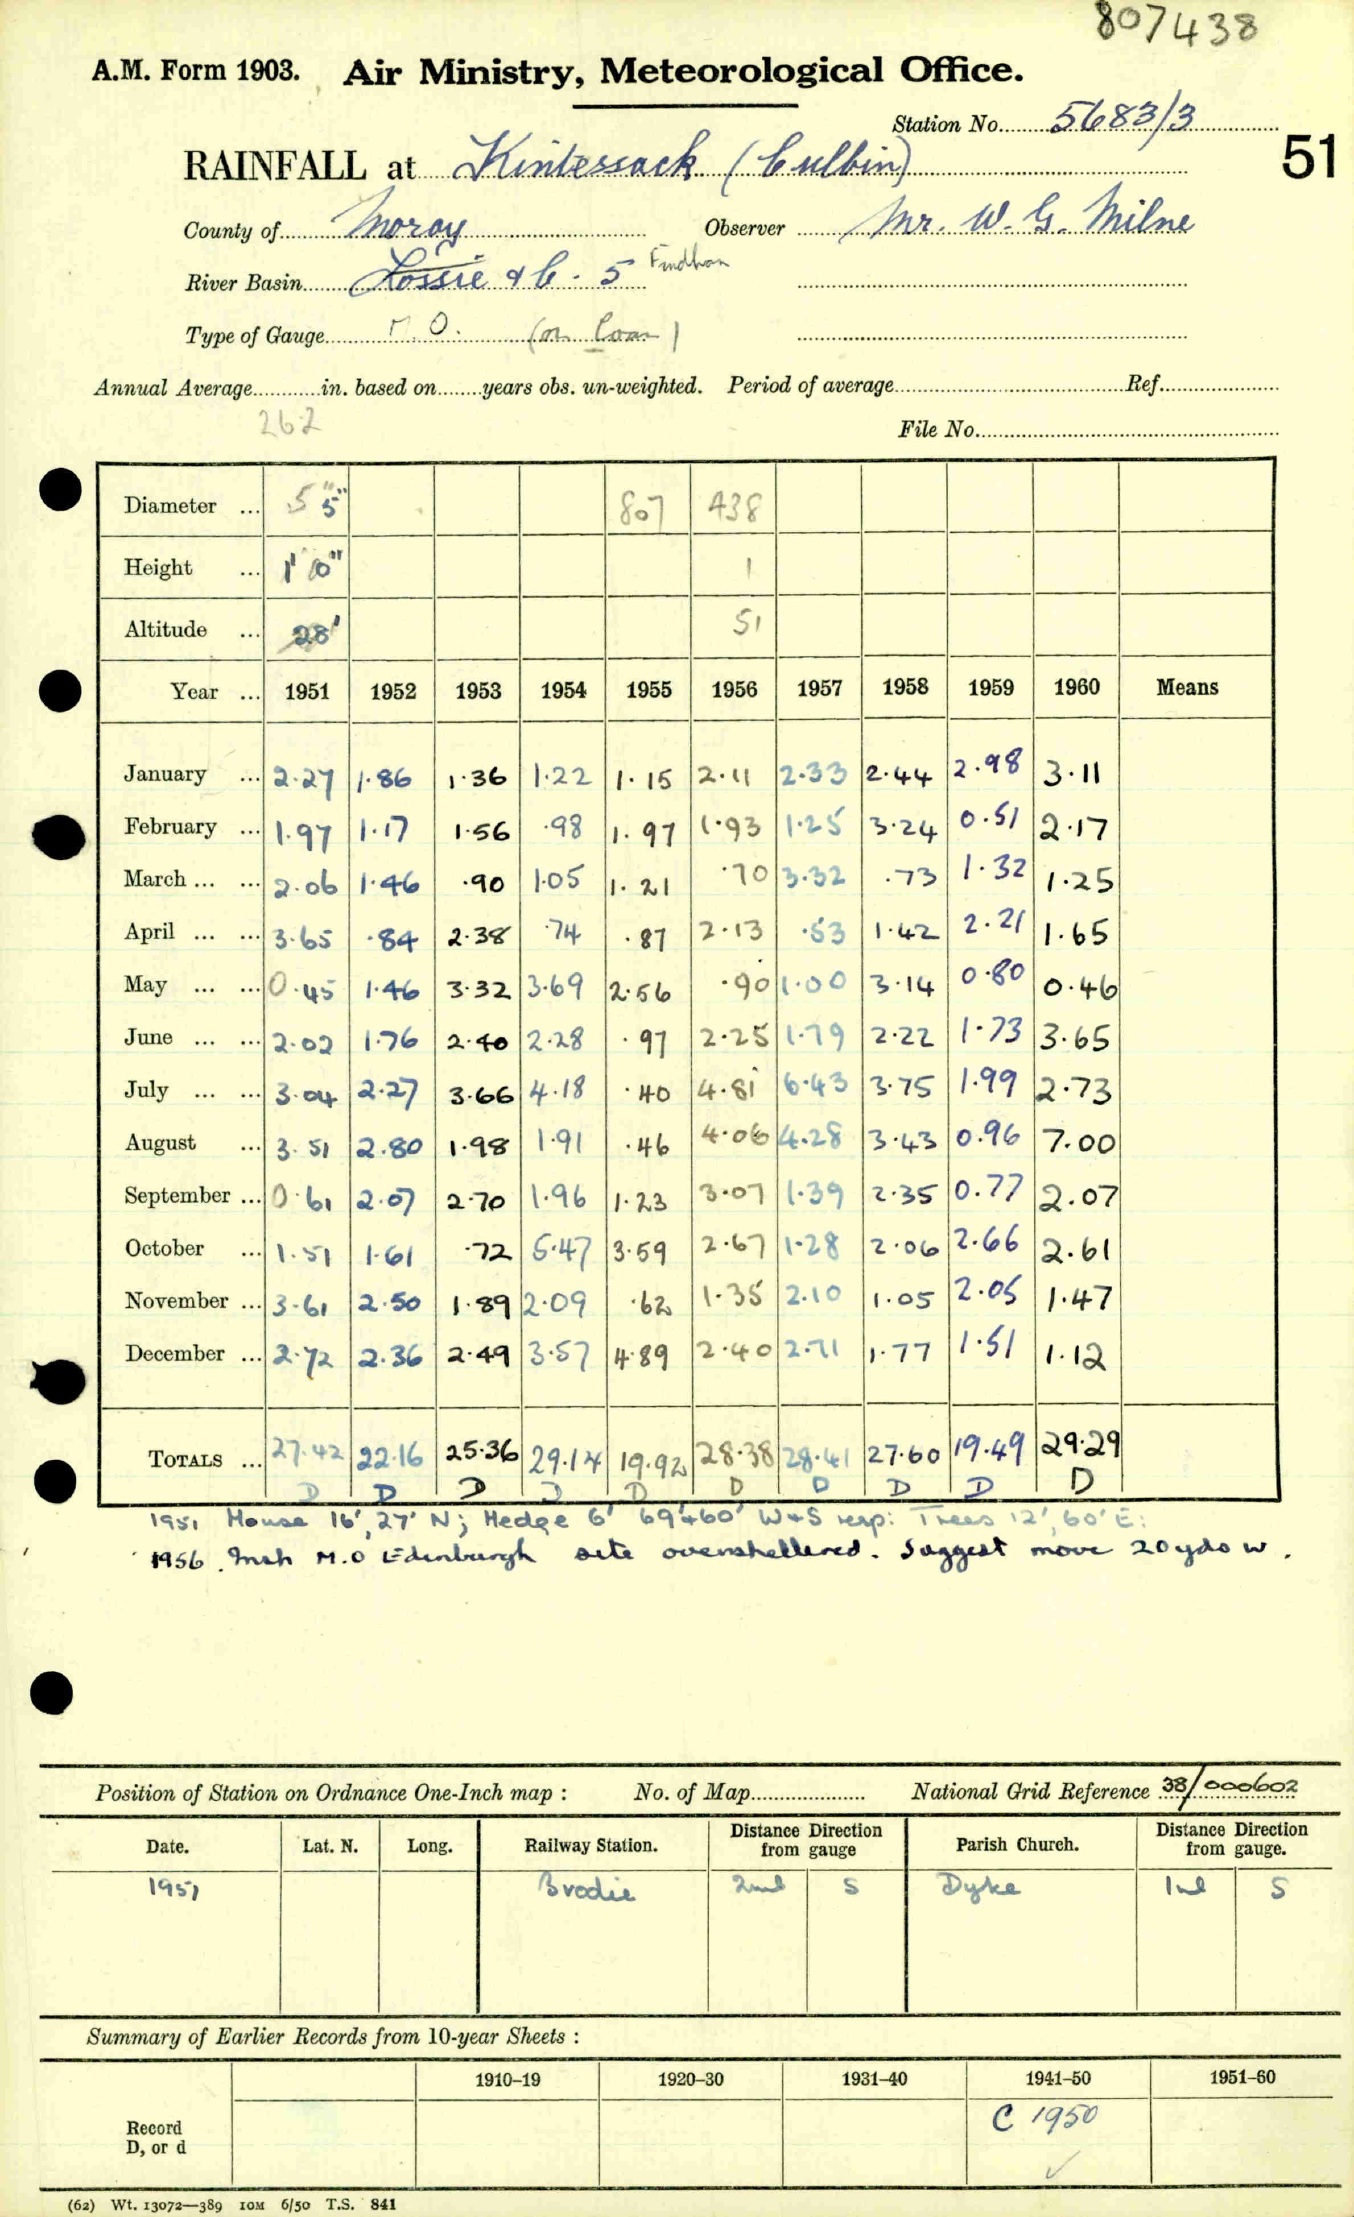 807438
A.M. Form 1903. Air Ministry, Meteorological Office.
Station No. 5683/3
51
RAINFALL at Kintessack (Culbin)
County of Moray Observer Mr. W. G. Milne
River Basin Lossie & C. 5 Findhorn
Type of Gauge M.O. (on loan)
Annual Average in. based on years obs. un-weighted. Period of average Ref.
262
File No.
Diameter ... 5" 5" 807 438
Height ... 1' 0" 1
Altitude ... 28' 51
Year ... 1951 1952 1953 1954 1955 1956 1957 1958 1959 1960 Means
January ... 2.27 1.86 1.36 1.22 1.15 2.11 2.33 2.44 2.98 3.11
February ... 1.97 1.17 1.56 .98 1.97 1.93 1.25 3.24 0.51 2.17
March ... ... 2.06 1.46 .90 1.05 1.21 .70 3.32 .73 1.32 1.25
April ... ... 3.65 .84 2.38 .74 .87 2.13 .53 1.42 2.21 1.65
May ... ... 0.45 1.46 3.32 3.69 2.56 .90 1.00 3.14 0.80 0.46
June ... ... 2.02 1.76 2.40 2.28 .97 2.25 1.79 2.22 1.73 3.65
July ... ... 3.04 2.27 3.66 4.18 .40 4.81 6.43 3.75 1.99 2.73
August ... 3.51 2.80 1.98 1.91 .46 4.06 4.28 3.43 0.96 7.00
September ... 0.61 2.07 2.70 1.96 1.23 3.07 1.39 2.35 0.77 2.07
October ... 1.51 1.61 .72 5.47 3.59 2.67 1.28 2.06 2.66 2.61
November ... 3.61 2.50 1.89 2.09 .62 1.35 2.10 1.05 2.05 1.47
December ... 2.72 2.36 2.49 3.57 4.89 2.40 2.71 1.77 1.51 1.12
TOTALS ... 27.42 22.16 25.36 29.14 19.92 28.38 28.41 27.60 19.49 29.29
D D D D D D D D D D
1951 House 16', 27' N; Hedge 6' 69'+60' W+S resp: Trees 12', 60' E:
1956. Insh M.O Edinburgh site oversheltered. Suggest move 20yds W.
Position of Station on Ordnance One-Inch map : No. of Map National Grid Reference 38/000602
Date. Lat. N. Long. Railway Station. Distance from Direction gauge Parish Church. Distance from Direction gauge.
1951 Brodie 2ml S Dyke 1ml S
Summary of Earlier Records from 10-year Sheets :
1910–19 1920–30 1931–40 1941–50 1951–60
Record D, or d C 1950 ✓
(62) Wt. 13072—389 10M 6/50 T.S. 841